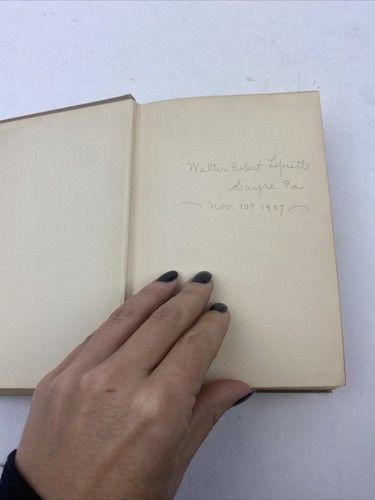 Walter Robert
Sayre Pa
Nov. 10th 1909